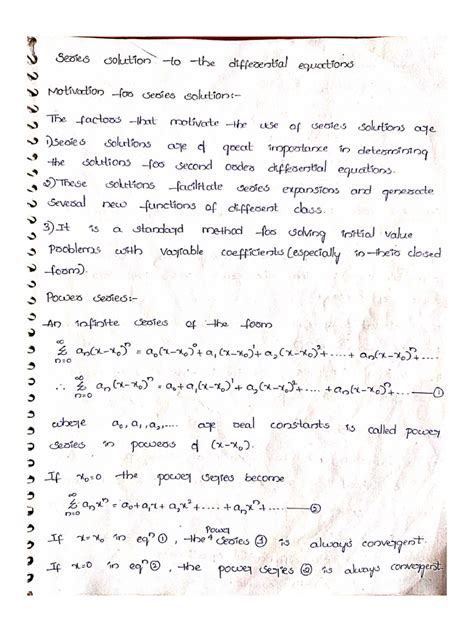 Series solution to the differential equations
Motivation for series solution:-
The factors that motivate the use of series solutions are
1)series solutions are of great importance in determining
the solutions for second order differential equations.
2)These solutions facilitate series expansions and generate
several new functions of different class.
3)It is a standard method for solving initial value
Problems with variable coefficients (especially in their closed
form).
Power series:-
An infinite series of the form
∞Σn=0 aₙ(x-x₀)ⁿ = a₀(x-x₀)⁰+a₁(x-x₀)¹+a₂(x-x₀)²+....+aₙ(x-x₀)ⁿ+....
∴ ∞Σn=0 aₙ(x-x₀)ⁿ = a₀+a₁(x-x₀)¹+a₂(x-x₀)²+....+aₙ(x-x₀)ⁿ+....—①
where a₀,a₁,a₂,.... are real constants is called power
series in powers of (x-x₀).
If x₀=0 the power series become
∞Σn=0 aₙxⁿ = a₀+a₁x+a₂x²+....+aₙxⁿ+....—②
If x=x₀ in eqⁿ①, the Power series ① is always convergent.
If x=0 in eqⁿ②, the power series ② is always convergent.